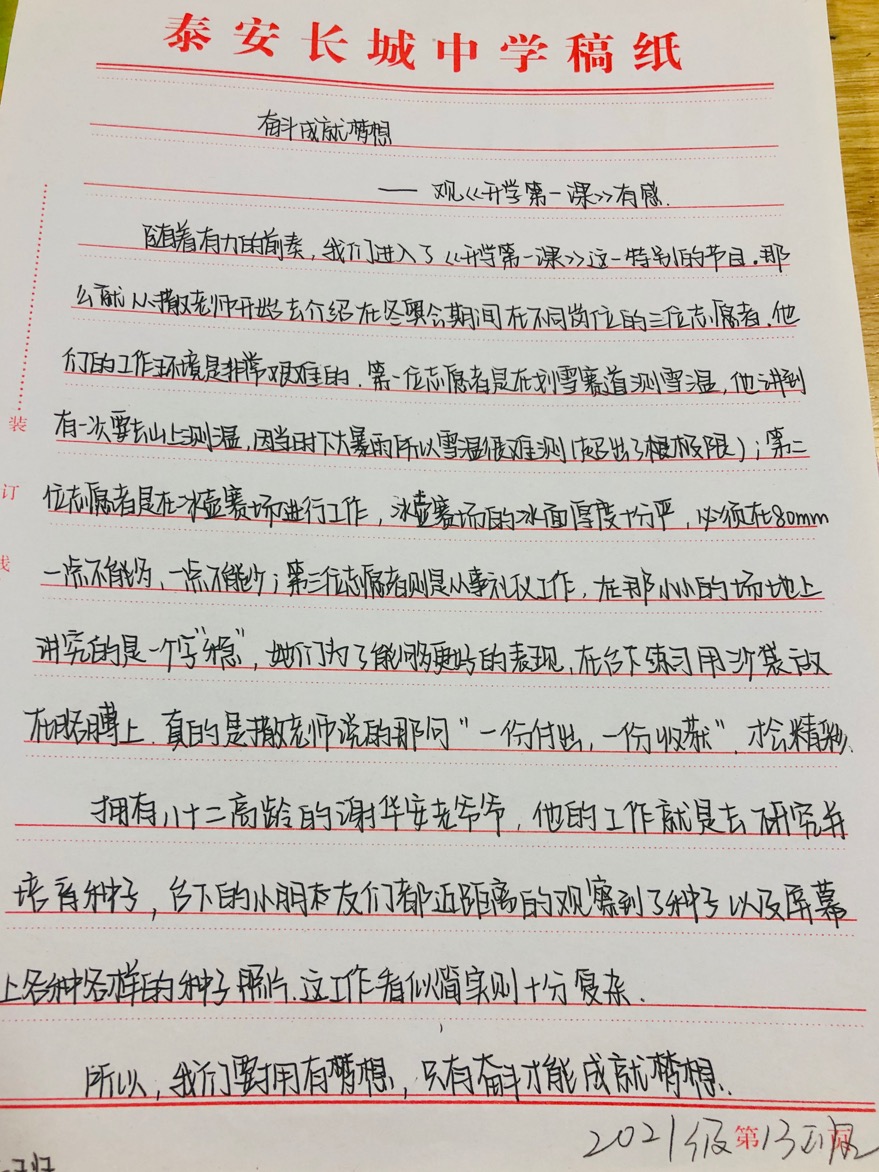 泰安长城中学稿纸
奋斗成就梦想
—— 观《开学第一课》有感.
随着有力的前奏,我们进入了《开学第一课》这一特别的节目.那
么就从撒老师开始去介绍在冬奥会期间在不同岗位的三位志愿者.他
们的工作环境是非常艰难的.第一位志愿者是在划雪赛道测雪温,他讲到
有一次要去山上测温,因当时下大暴雨所以雪温很难测(超出了极限);第二
位志愿者是在冰壶赛场进行工作,冰壶赛场的冰面厚度十分严,必须在80mm
一点不能多、一点不能少;第三位志愿者则是从事礼仪工作,在那小小的场地上
讲究的是一个字"稳",她们为了能够更好的表现,在台下练习用沙袋放
在胳膊上.真的是撒老师说的那问"一份付出,一份收获".才会精彩.
拥有八十二高龄的谢华安老爷爷,他的工作就是去研究并
培育种子,台下的小朋友们都近距离的观察到了种子以及屏幕
上各种各样的种子照片.这工作看似简实则十分复杂.
所以,我们要拥有梦想,只有奋斗才能成就梦想.
2021级 第13页
装
订
线